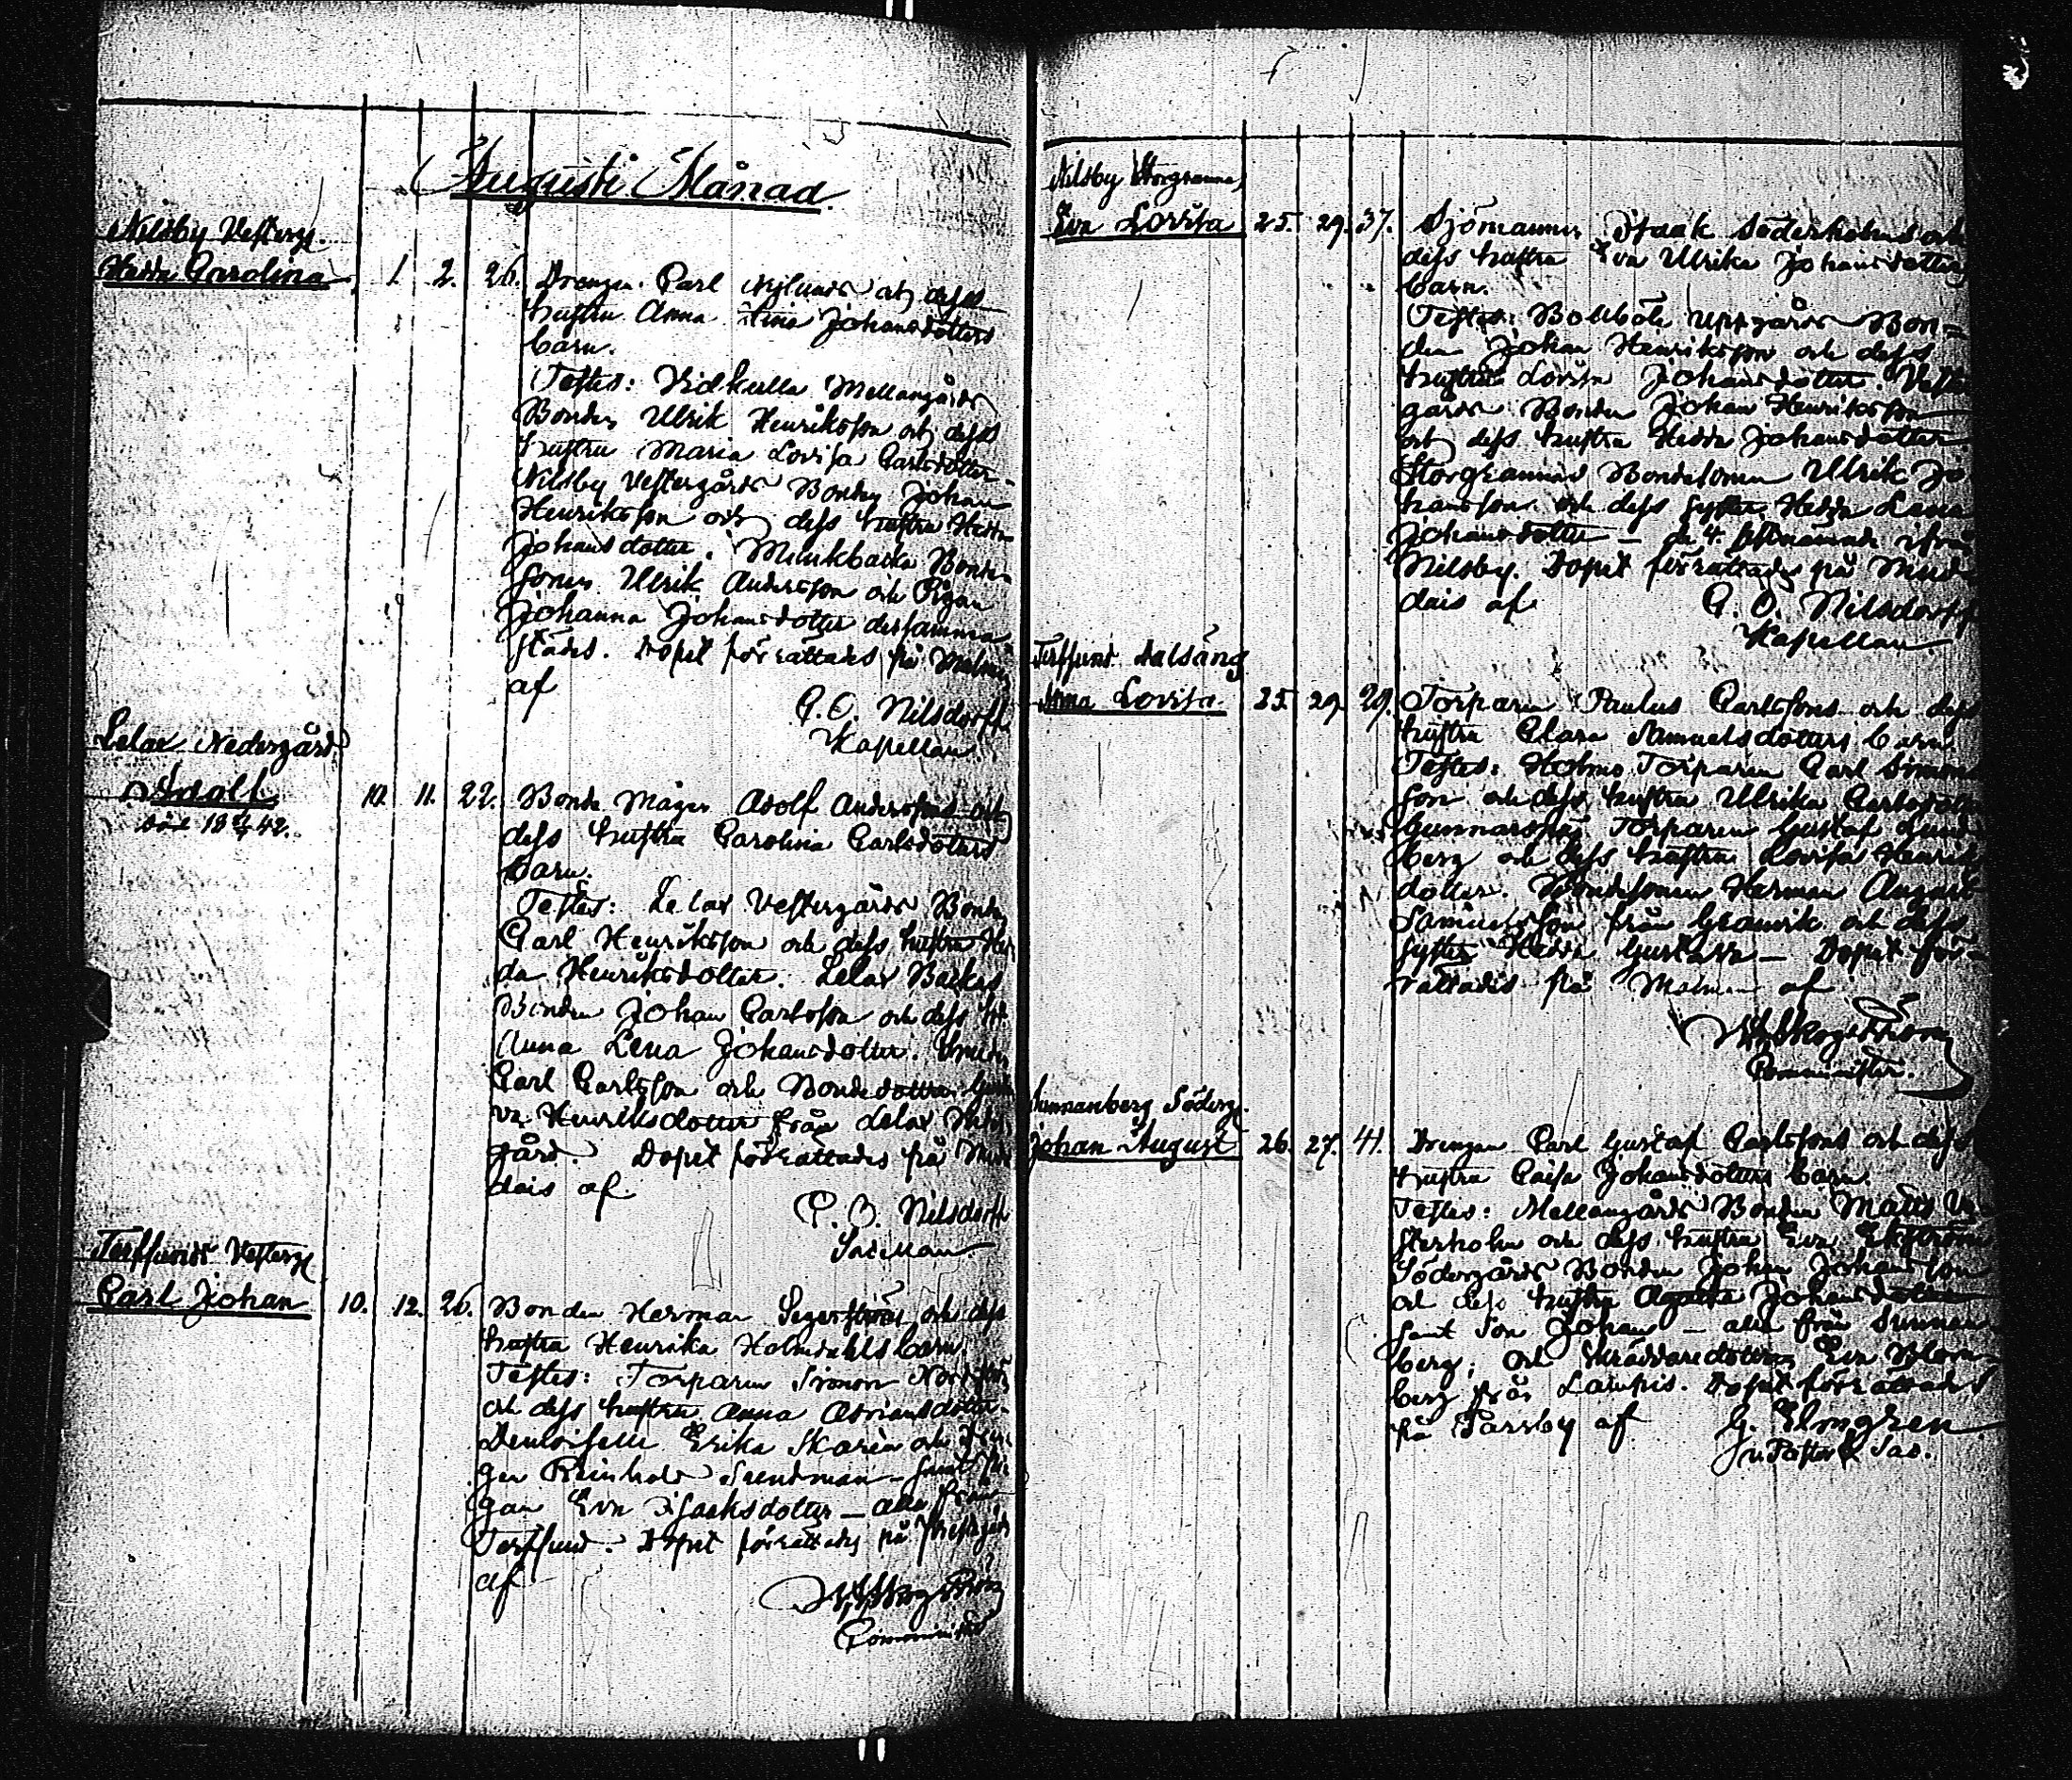 Augusti Månad
Nilsby Vesterg.
Hedda Carolina 1. 2. 26. Drengen Carl Nylunds och dess
hustru Anna Stina Johansdotters
barn.
Testes: Vidkulla Mellangårds
Bonden Ulrik Henriksson och dess
hustru Maria Lovisa Carlsdotter
Nilsby Vestergårds Bonden Johan
Henriksson och dess hustru Hedda
Johansdotter. Munkbacka Bonde
sonen Ulrik Andersson och Pigan
Johanna Johansdotter dersamma
städes. Dopet förrättades på Malmen
af
C. O. Nilsdorff
Kapellan
Lelax Nedergård
Adolf 10. 11. 22. Bonde Mågen Adolf Anderssons och
död 18 42. dess hustru Carolina Carlsdotters
barn.
Testes: Lelax Vestergårds Bonden
Carl Henriksson och dess hustru Hed
da Henriksdotter. Lelax Backas
Bonden Johan Carlsson och dess h:
Anna Lena Johansdotter.
Carl Carlsson och Bondedottren
va Henriksdotter från Lelax
gård. Dopet förrättades på Mid
dais af
C. O. Nilsdorff
Sacellan
Terfsunds Vesterg
Carl Johan 10. 12. 26. Bonden Herman Segerströms och dess
hustru Henrika Holmdahls barn.
Testes: Torparen Simon
och dess hustru Anna Adriansdotter.
Demoiselle Erika Skarin och Dren
gen Reinhold Sundman – samt Pi
gan Eva Isaksdotter – alla från
Terfsund. Dopet förrättades på Prestgård
af
Skogström
Comminister
Nilsby Storgranna,
Eva Lovisa 25. 29. 37. Sjömannen Isaak Söderholms och
dess hustru Eva Ulrika Johansdotters
barn.
Testes: Bolleböle Uppgårds Bon=
den Johan Henriksson och dess
hustru Lovisa Johansdotter. Vest
gårds Bonden Johan Henriksson
och dess hustru Hedda Johansdotter
Storgrannas Bondesonen Ulrik Jo
hansson och dess syster Hedda Lena
Johansdotter – de 4 sistnämnda ifrån
Nilsby. Dopet förrättades på Mid
dais af
C. O. Nilsdorff
Kapellan
Terfsund Dalsäng
Anna Lovisa 25. 29. 29. Torparen Paulus Carlssons och dess
hustru Clara Samuelsdotters barn
Testes: Holmo Torparen Carl Simons
son och dess hustru Ulrika Carlsdotter
Gunnarsnäs Torparen Gustaf Lind
berg och dess hustru Lovisa Henriks
dotter. Bondesonen Herman August
Samuelsson från Granvik och dess
syster Hedda Gustava – Dopet för=
rättades på Malmen af
Skogström
Comminister.
Sunnanberg Söderg.
Johan August 26. 27. 41. Drengen Carl Gustaf Carlssons och dess
hustru Caisa Johansdotters barn.
Testes: Mellangårds Bonden Matts Ve
sterholm och dess hustru Eva Ekström
Södergårds Bonden Johan Johansson
och dess hustru Agatha Johansdotter
samt Son Johan – alla från Sunnan
berg; och Skräddaredottren Eva Blom
berg från Lampis. Dopet förrättades
på Parsby af G. Elmgren
v. Pastor & Sac.